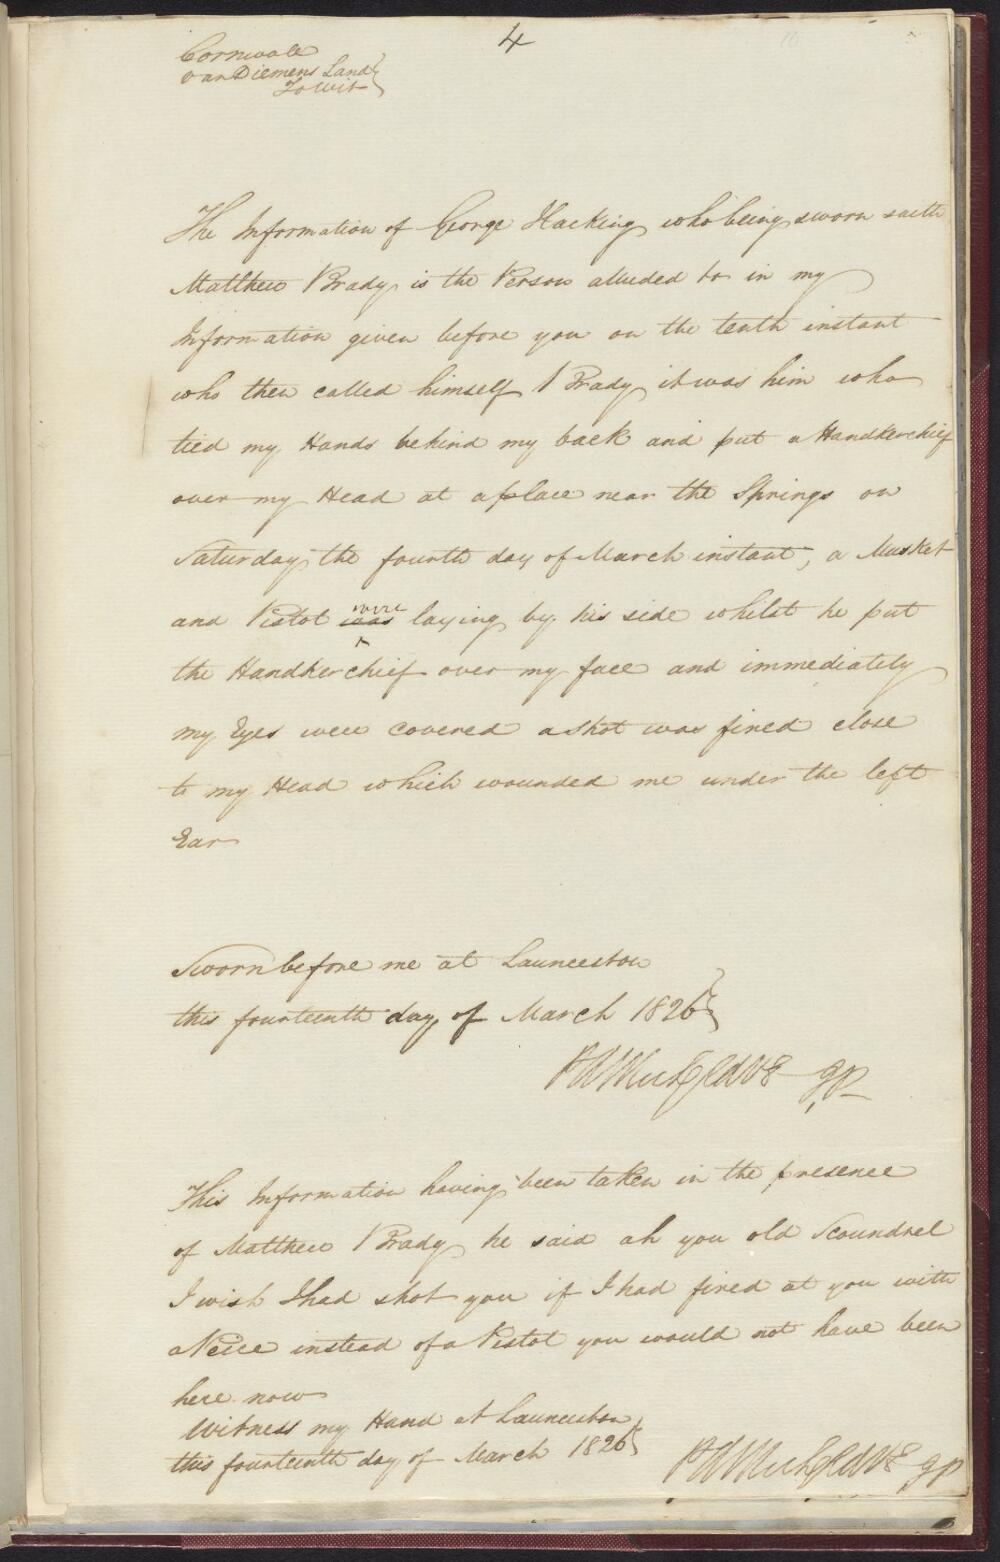 4
Cornwale
Van Diemens Land
To Wit
The Information of George Hacking who being sworn saith
Matthew Brady is the Person alluded to in my
Information given before you on the tenth instant
who then called himself Brady it was him who
tied my Hands behind my back and put a Handkerchief
over my Head at a place near the Springs on
Saturday the fourth day of March instant, a Musket
and Pistol were laying by his side whilst he put
the Handkerchief over my face and immediately
my Eyes were covered a shot was fired close
to my Head which wounded me under the left
Ear
Sworn before me at Launceston
this fourteenth day of March 1826
JP
This Information having been taken in the presence
of Matthew Brady he said ah you old Scoundrel
I wish I had shot you if I had fired at you with
a Peice instead of a Pistol you would not have been
here now
Witness my Hand at Launceston
this fourteenth day of March 1826
JP